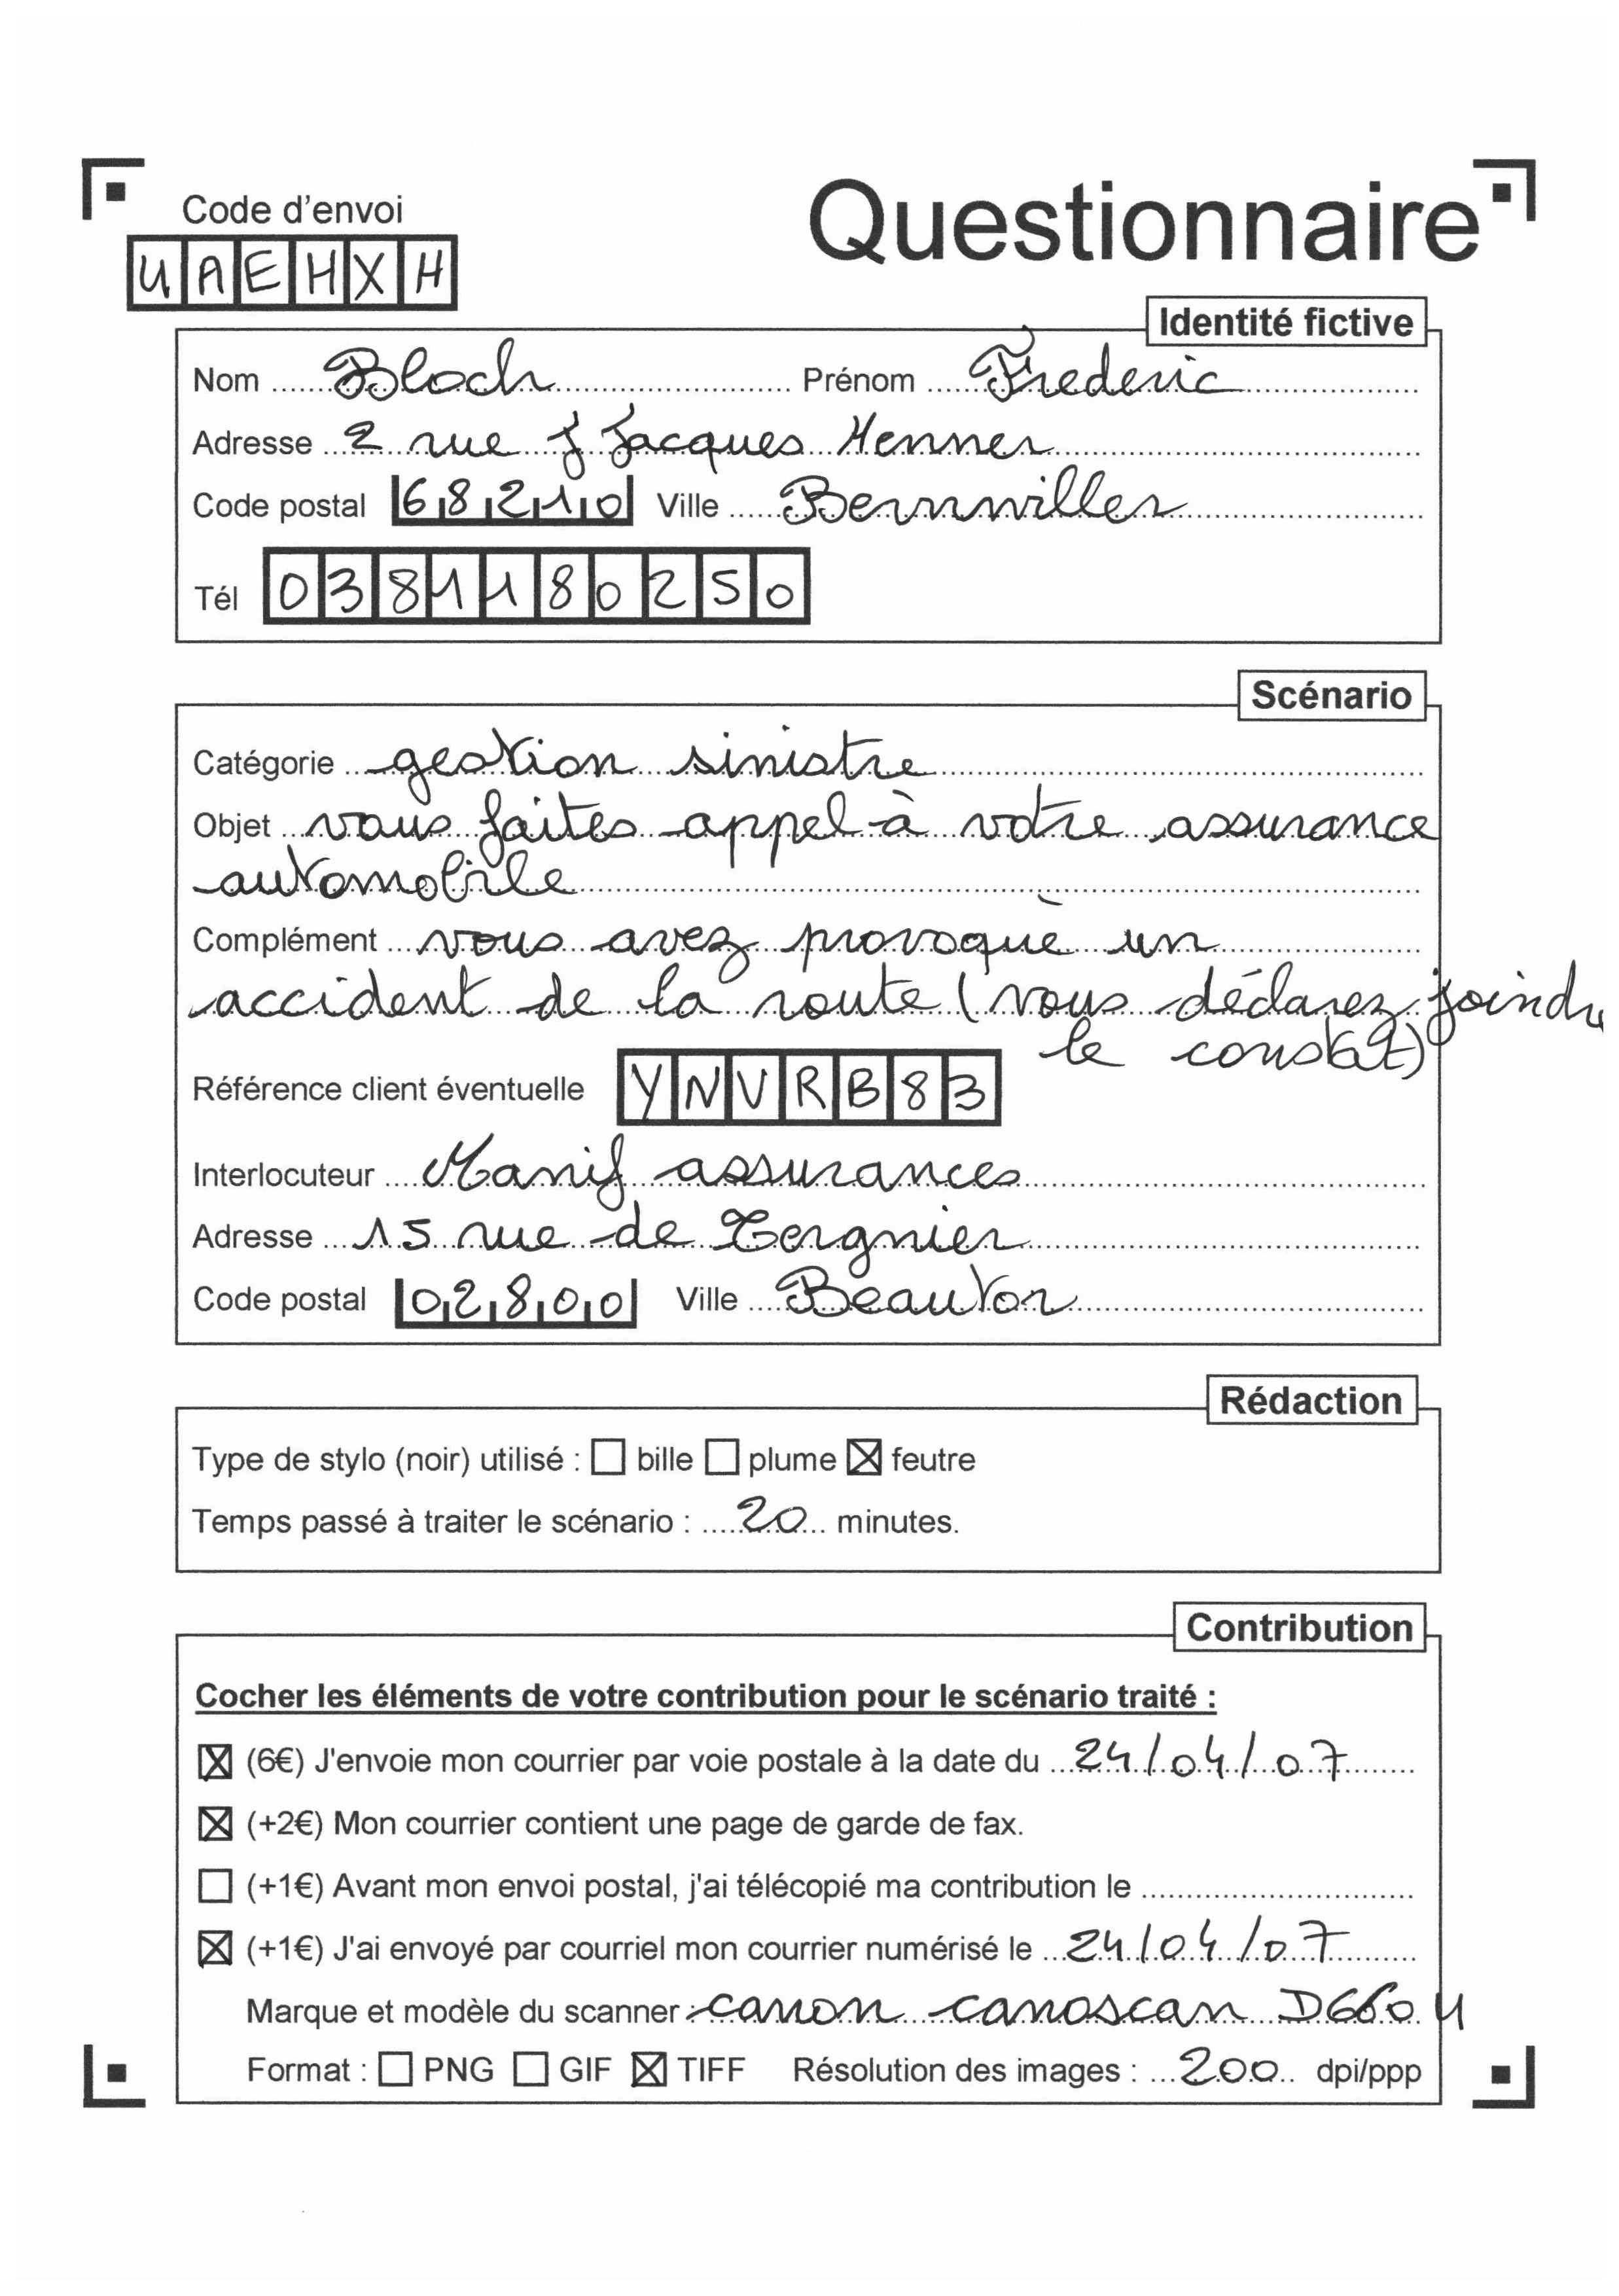 Code d'envoi
Questionnaire
UAEHXH
Identité fictive
Nom Bloch Prénom Frederic
Adresse 2 rue J Jacques Henner
Code postal 68210 Ville Bernwiller
Tél 0381180250
Scénario
Catégorie gestion sinistre
Objet vous faites appel à votre assurance
automobile
Complément vous avez provoquè un
accident de la route (vous déclarez joindre
le constat)
Référence client éventuelle YNVRB83
Interlocuteur Manif assurances
Adresse 15 rue de Tergnier
Code postal 02800 Ville Beautor
Rédaction
Type de stylo (noir) utilisé : ☐ bille ☐ plume ☒ feutre
Temps passé à traiter le scénario : 20 minutes.
Contribution
Cocher les éléments de votre contribution pour le scénario traité :
☒ (6€) J'envoie mon courrier par voie postale à la date du 24/04/07
☒ (+2€) Mon courrier contient une page de garde de fax.
☐ (+1€) Avant mon envoi postal, j'ai télécopié ma contribution le
☒ (+1€) J'ai envoyé par courriel mon courrier numérisé le 24/04/07
Marque et modèle du scanner : canon canoscan D660U
Format : ☐ PNG ☐ GIF ☒ TIFF Résolution des images : 200 dpi/ppp